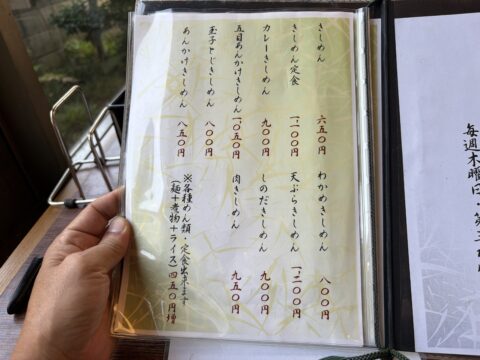 毎週木曜日・第三
きしめん 六五〇円
きしめん定食 一、一〇〇円
カレーきしめん 九〇〇円
五目あんかけきしめん 一、〇五〇円
玉子とじきしめん 八〇〇円
あんかけきしめん 八五〇円
わかめきしめん 八〇〇円
天ぷらきしめん 一、二〇〇円
しのだきしめん 九〇〇円
肉きしめん 九五〇円
※各種めん類・定食出来ます
(麺+煮物+ライス)四五〇円増